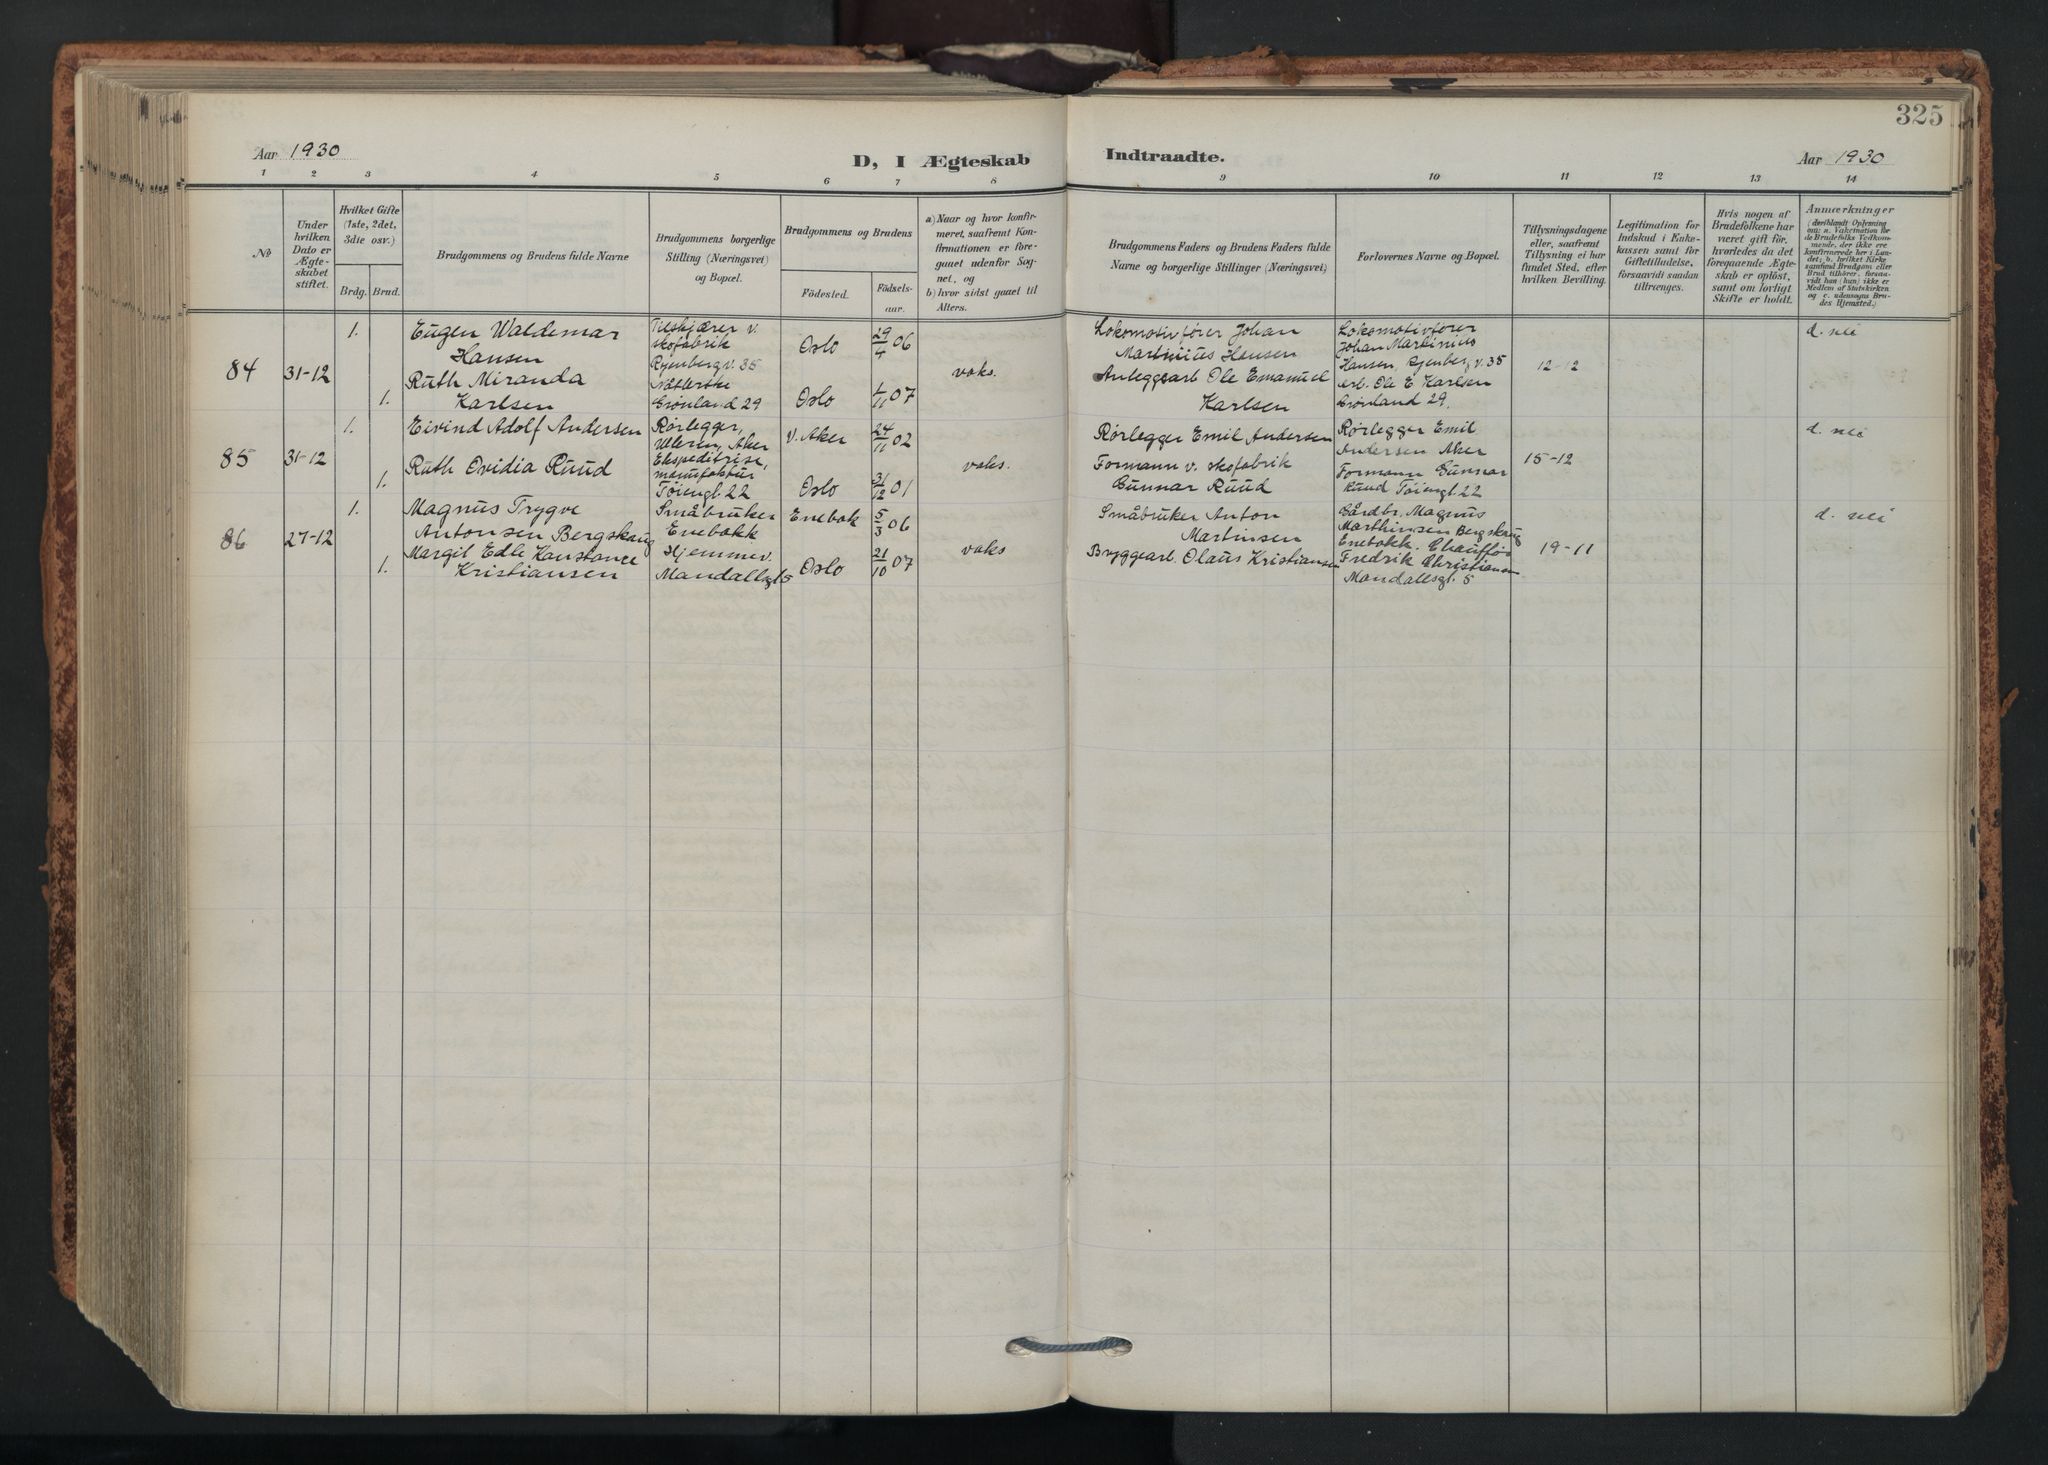 325
Aar 1930
D, I Ægteskab
Indtraadte.
Aar 1930
1 2 3 4 5 6 7 8 9 10 11 12 13 14
No
Under hvilken Dato er Ægteskabet stiftet.
Hvilket Gifte (1ste, 2det, 3die osv.)
Brdg. Brud.
Brudgommens og Brudens fulde Navne
Brudgommens borgerlige Stilling (Næringsvei) og Bopæl.
Brudgommens og Brudens
Födested.
Födselsaar.
a) Naar og hvor konfirmeret, saafremt Konfirmationen er foregaaet udenfor Sognet, og
b) hvor sidst gaaet til Alters.
Brudgommens Faders og Brudens Faders fulde Navne og borgerlige Stillinger (Næringsvei)
Forlovernes Navne og Bopæl.
Tillysningsdagene eller, saafremt Tillysning ei har fundet Sted, efter hvilken Bevilling.
Legitimation for Indskud i Enkekassen samt for Giftetilladelse, forsaavidt saadan tiltrænges.
Hvis nogen af Brudefolkene har været gift för, hvorledes da det foregaaende Ægteskab er oplöst, samt om lovligt Skifte er holdt.
Anmærkninger
(deriblandt Oplysning om: a. Vakcination for de Brudefolks Vedkommende, der ikke ere konfirmerede her i Landet; b. hvilket Kirkesamfund Brudgom eller Brud tilhörer, forsaavidt han (hun) ikke er Medlem af Statskirken og c. udensogns Brudes Hjemsted.)
84
31-12
1.
Eugen Waldemar
Hansen
Tilskjærer v.
skofabrik
Ryenberg v. 35
Oslo
29/4 06
vaks.
Lokomotivfører Johan
Martinius Hansen
Lokomotivfører
Johan Martinius
Hansen, Ryenberg v. 35
12-12
d. nei
1.
Ruth Miranda
Karlsen
Nætterske
Grønland 29
Oslo
1/11 07
Anleggsarb Ole Emanuel
Karlsen
arb. Ole E Karlsen
Grønland 29.
85
31-12
1.
Eivind Adolf Andersen
Rørlegger,
Ulleren, Aker
V. Aker
24/11 02
vaks.
Rørlegger Emil Andersen
Rørlegger Emil
Andersen Aker
15-12
d. nei
1.
Ruth Ovidia Ruud
Ekspeditrise,
manufaktur
Tøiengt. 22
Oslo
31/12 01
Formann v. skofabrik
Gunnar Ruud
Formann Gunnar
Ruud Tøiengt 22
86
27-12
1.
Magnus Trygve
Antonsen Bergskaug
Småbruker
Enebakk
Enebak
5/3 06
vaks
Småbruker Anton
Martinsen
Gårdbr. Magnus
Marthinsen Bergskaug
Enebakk. Chauffør
19-11
d. nei
1.
Margit Edle Konstance
Kristiansen
Hjemmev.
Mandallsgt 5
Oslo
21/10 07
Bryggearb. Olaus Kristiansen
Fredrik Christiansen
Mandallsgt. 5